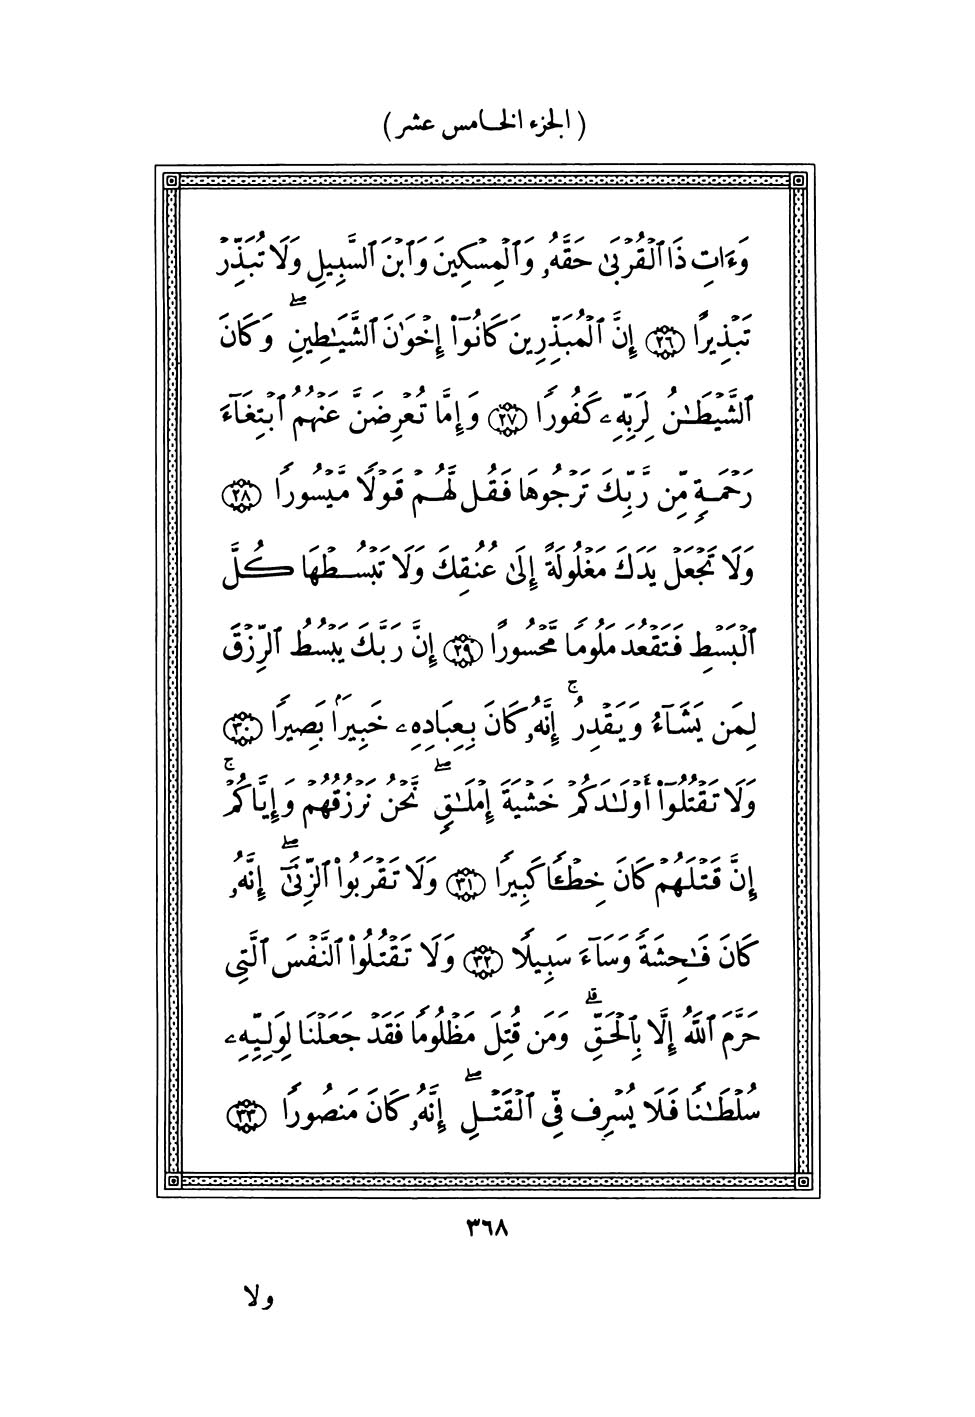 ( الجزء الخامس عشر )
وَءَاتِ ذَا ٱلْقُرْبَىٰ حَقَّهُۥ وَٱلْمِسْكِينَ وَٱبْنَ ٱلسَّبِيلِ وَلَا تُبَذِّرْ
تَبْذِيرًا ٢٦ إِنَّ ٱلْمُبَذِّرِينَ كَانُوٓا۟ إِخْوَٰنَ ٱلشَّيَـٰطِينِ ۖ وَكَانَ
ٱلشَّيْطَـٰنُ لِرَبِّهِۦ كَفُورًا ٢٧ وَإِمَّا تُعْرِضَنَّ عَنْهُمُ ٱبْتِغَآءَ
رَحْمَةٍ مِّن رَّبِّكَ تَرْجُوهَا فَقُل لَّهُمْ قَوْلًا مَّيْسُورًا ٢٨
وَلَا تَجْعَلْ يَدَكَ مَغْلُولَةً إِلَىٰ عُنُقِكَ وَلَا تَبْسُطْهَا كُلَّ
ٱلْبَسْطِ فَتَقْعُدَ مَلُومًا مَّحْسُورًا ٢٩ إِنَّ رَبَّكَ يَبْسُطُ ٱلرِّزْقَ
لِمَن يَشَآءُ وَيَقْدِرُ ۚ إِنَّهُۥ كَانَ بِعِبَادِهِۦ خَبِيرًۢا بَصِيرًا ٣٠
وَلَا تَقْتُلُوٓا۟ أَوْلَـٰدَكُمْ خَشْيَةَ إِمْلَـٰقٍ ۖ نَّحْنُ نَرْزُقُهُمْ وَإِيَّاكُمْ ۚ
إِنَّ قَتْلَهُمْ كَانَ خِطْـًٔا كَبِيرًا ٣١ وَلَا تَقْرَبُوا۟ ٱلزِّنَىٰٓ ۖ إِنَّهُۥ
كَانَ فَـٰحِشَةً وَسَآءَ سَبِيلًا ٣٢ وَلَا تَقْتُلُوا۟ ٱلنَّفْسَ ٱلَّتِى
حَرَّمَ ٱللَّهُ إِلَّا بِٱلْحَقِّ ۗ وَمَن قُتِلَ مَظْلُومًا فَقَدْ جَعَلْنَا لِوَلِيِّهِۦ
سُلْطَـٰنًا فَلَا يُسْرِف فِّى ٱلْقَتْلِ ۖ إِنَّهُۥ كَانَ مَنصُورًا ٣٣
٣٦٨
ولا